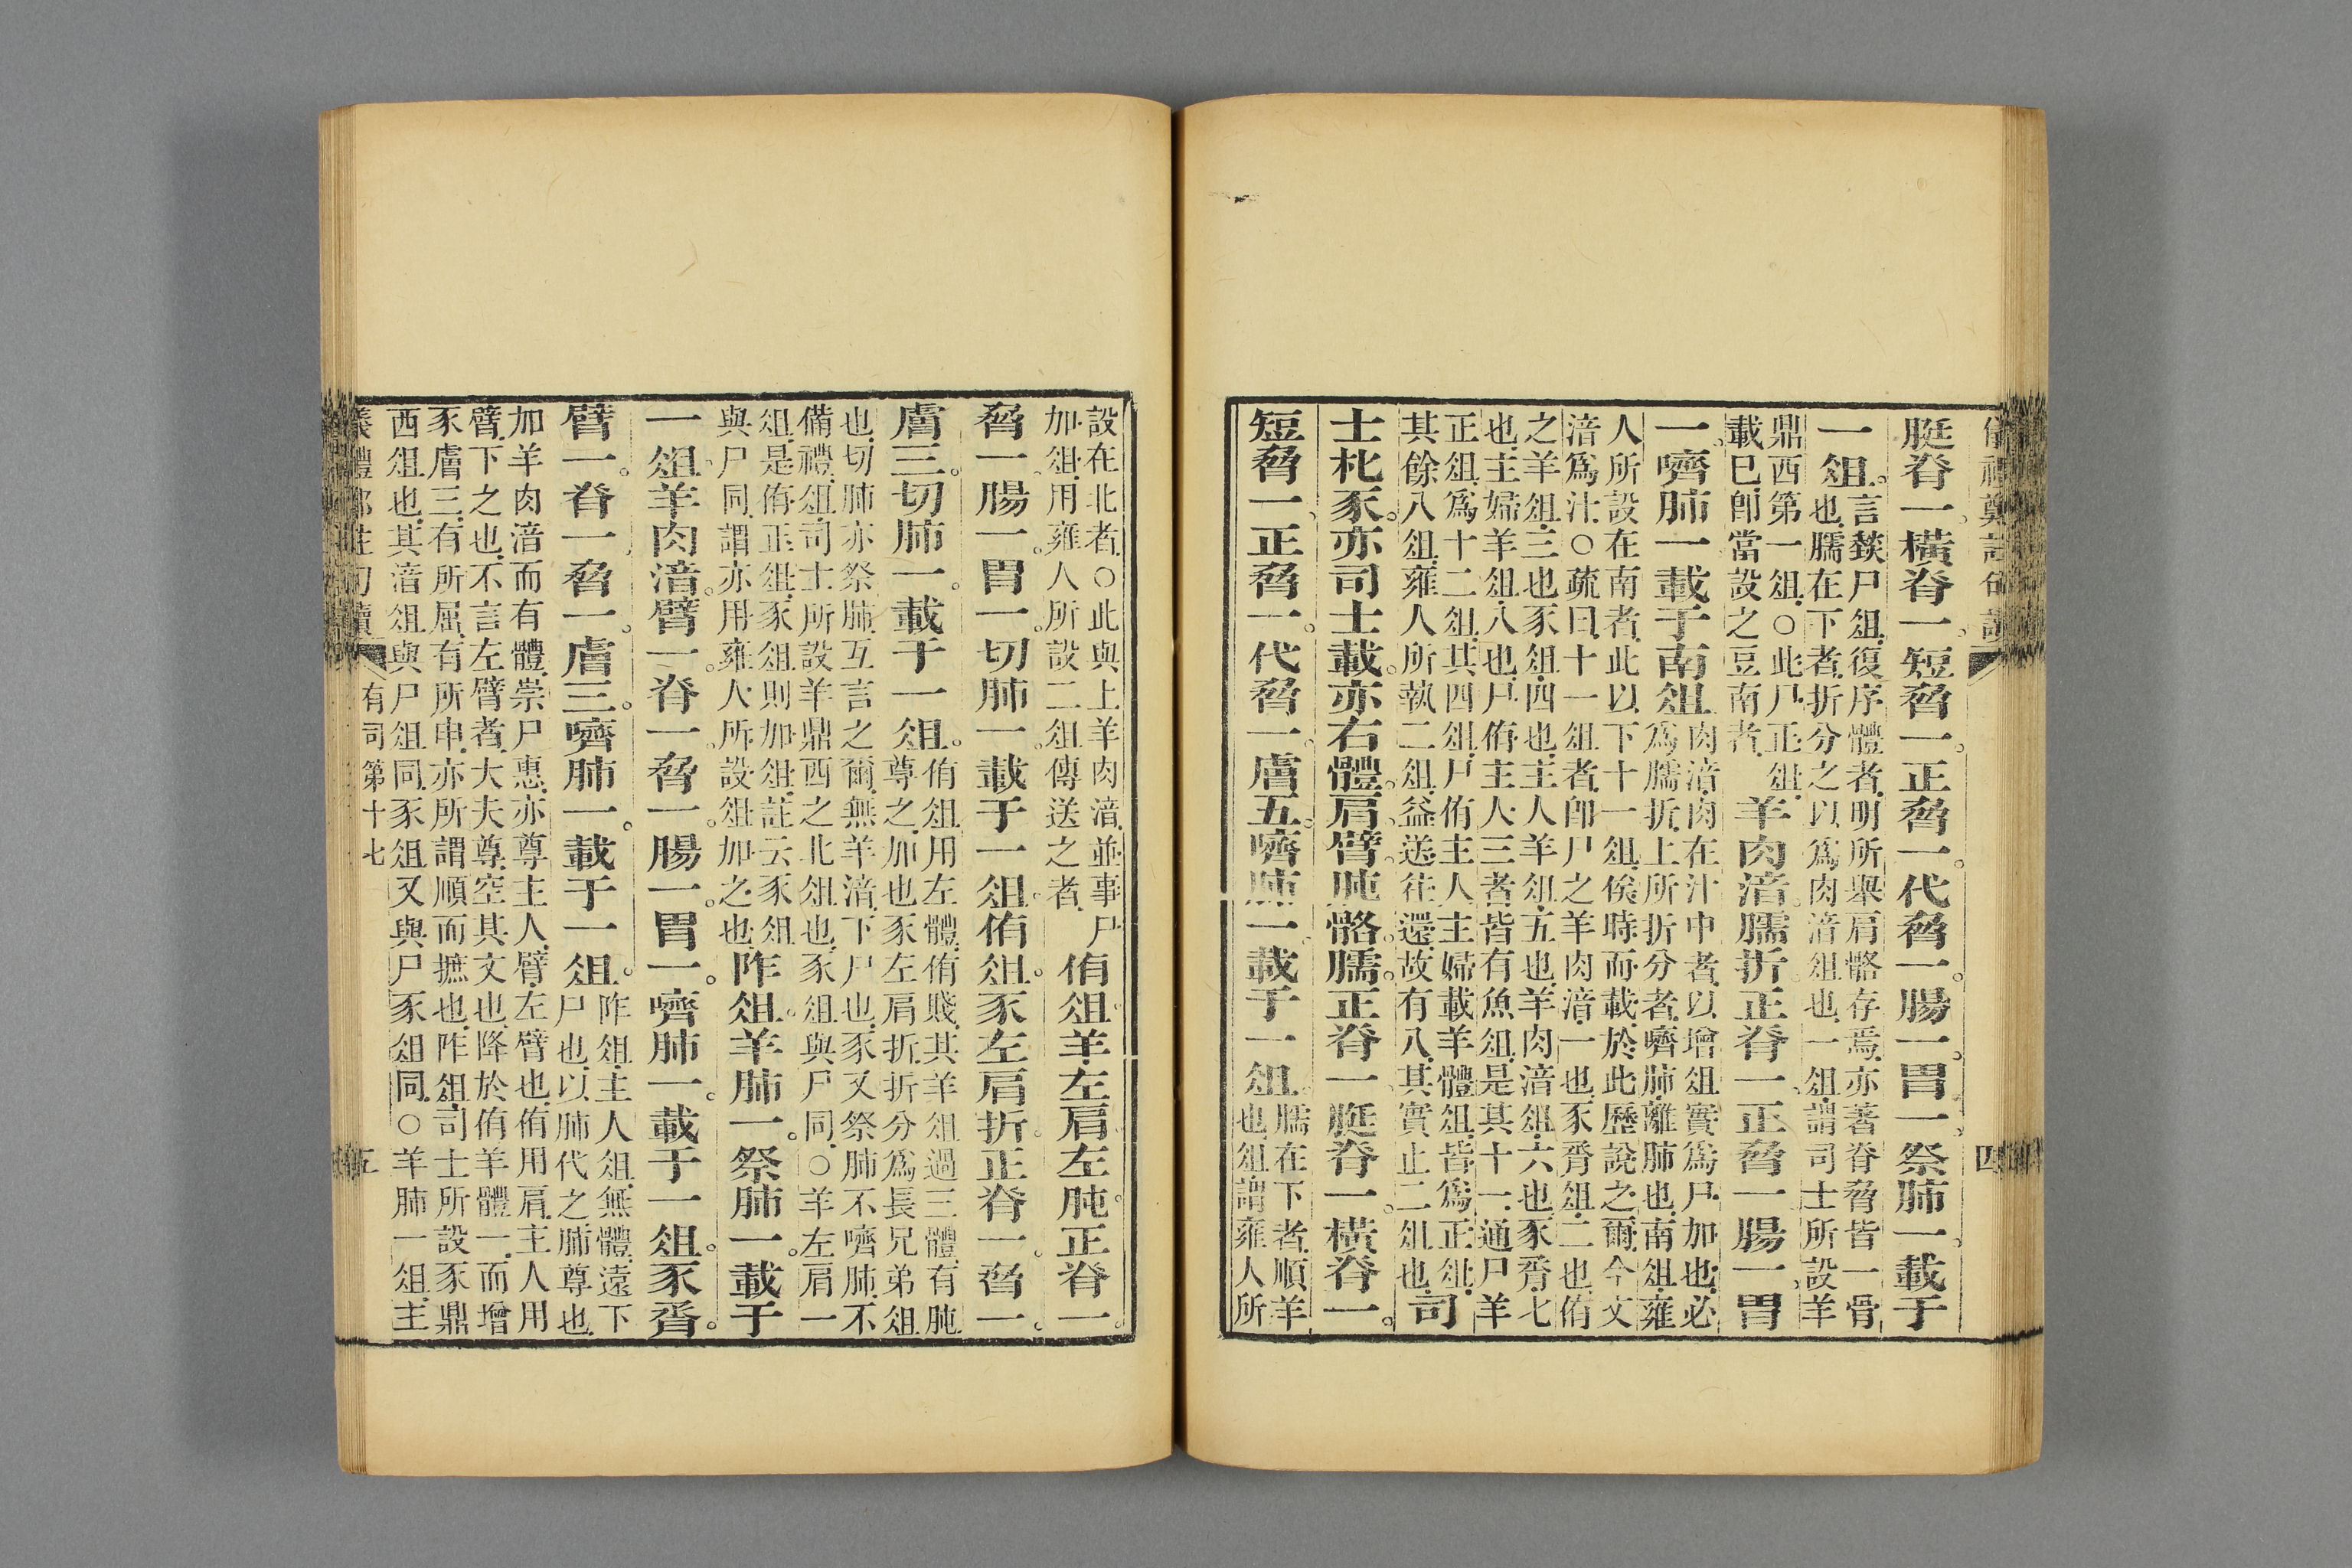 儀禮鄭註句讀
四
脡脊一。橫脊一。短脅一。正脅一。代脅一。腸一。胃一。祭肺一。載于
一俎。言燅尸俎復序體者明所舉肩骼存焉亦著脊脅皆一骨
也臑在下者折分之以爲肉湆俎也一俎謂司士所設羊
鼎西第一俎○此尸正俎
載已卽當設之豆南者羊肉湆臑折正脊一。正脅一腸一。胃
一。嚌肺一載于南俎肉湆肉在汁中者以增俎實爲尸加也必
爲臑折上所折分者嚌肺離肺也南俎雍
人所設在南者此以下十一俎俟時而載於此歷說之爾今文
湆爲汁○疏曰十一俎者卽尸之羊肉湆一也豕脀俎二也侑
之羊俎三也豕俎四也主人羊俎五也羊肉湆俎六也豕脀七
也主婦羊俎八也尸侑主人三者皆有魚俎是其十一通尸羊
正俎爲十二俎其四俎尸侑主人主婦載羊體俎皆爲正俎
其餘八俎雍人所執二俎益送往還故有八其實止二俎也司
士朼豕。亦司士載。亦右體。肩臂肫骼。臑。正脊一脡脊一橫脊一。
短脅一。正脅一。代脅一。膚五。嚌肺一。載于一俎。臑在下者順羊
也俎謂雍人所
設在北者○此與上羊肉湆並事尸
加俎用雍人所設二俎傳送之者侑俎羊左肩左肫。正脊一。
脅一。腸一。胃一。切肺一。載于一俎。侑俎。豕左肩折。正脊一。脅一。
膚三。切肺一。載于一俎。侑俎用左體侑賤其羊俎過三體有肫
尊之加也豕左肩折折分爲長兄弟俎
也切肺亦祭肺互言之爾無羊湆下尸也豕又祭肺不嚌肺不
備禮俎司士所設羊鼎西之北俎也豕俎與尸同○羊左肩一
俎是侑正俎豕俎則加俎註云豕俎
與尸同謂亦用雍人所設俎加之也阼俎。羊肺一。祭肺一。載于
一俎。羊肉湆。臂一。脊一。脅一。腸一。胃一。嚌肺一。載于一俎。豕脀。
臂一。脊一脅一。膚三。嚌肺一。載于一俎。阼俎主人俎無體遠下
尸也以肺代之肺尊也
加羊肉湆而有體崇尸惠亦尊主人臂左臂也侑用肩主人用
臂下之也不言左臂者大夫尊空其文也降於侑羊體一而增
豕膚三有所屈有所申亦所謂順而摭也阼俎司士所設豕鼎
西俎也其湆俎與尸俎同豕俎又與尸豕俎同○羊肺一俎主
儀禮鄭註句讀　有司第十七　五